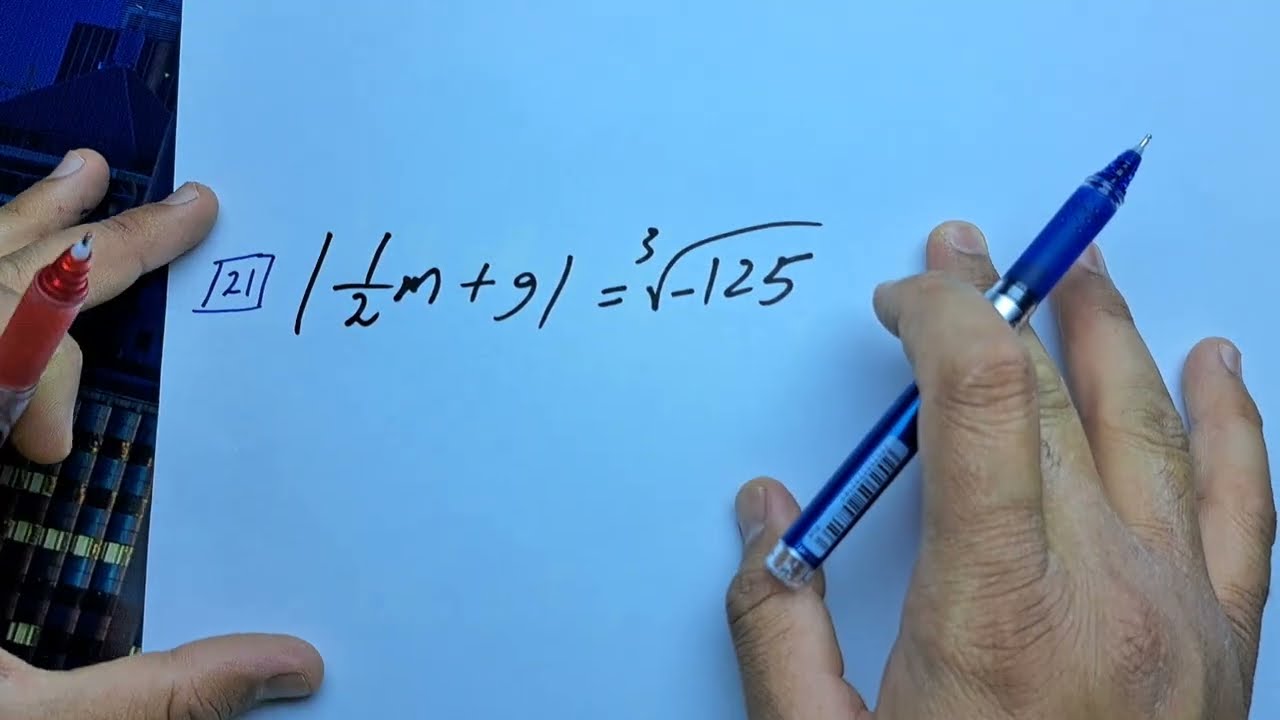 21 |1/2 m + 9| = ∛-125